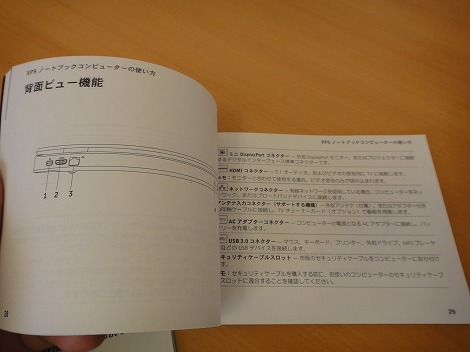 XPS ノートブックコンピューターの使い方
背面ビュー機能
1 2 3
28
XPS ノートブックコンピューターの使い方
ミニ DisplayPort コネクター – 外部 DisplayPort モニター、またはプロジェクターに接続
するデジタルインターフェース標準コネクターです。
HDMI コネクター – 5.1 オーディオ、およびビデオの信号用に TV に接続します。
メモ：モニターと合わせて使用する場合、ビデオ信号のみが読取られます。
ネットワークコネクター – 有線ネットワークを使用している場合、コンピューターをネッ
ワーク、またはブロードバンドデバイスに接続します。
アンテナ入力コネクター（サポートする機種） – 外部アンテナ（付属）、または
同軸ケーブルに接続し、TV チューナーカード（オプション）で番組を視聴します。
AC アダプターコネクター – コンピューターの電源となる AC アダプターに接続し、バッ
リーを充電します。
USB 3.0 コネクター – マウス、キーボード、プリンター、外部ドライブ、MP3 プレーヤ
などの USB デバイスを接続します。
キュリティケーブルスロット – 市販のセキュリティケーブルをコンピューターに取り付け
す。
モ：セキュリティケーブルを購入する前に、お使いのコンピューターのセキュリティケーブ
スロットに適合することを確認してください。
29